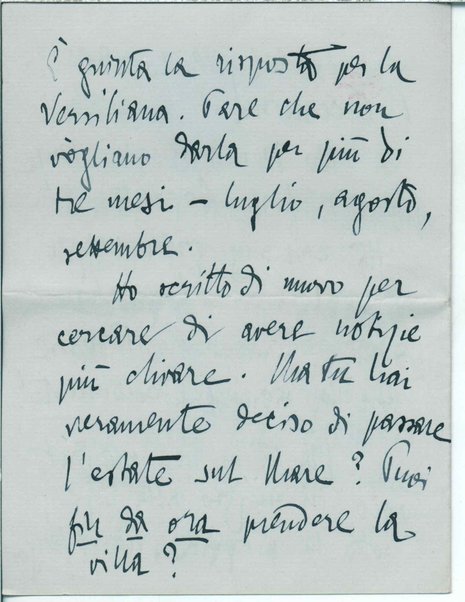 È giunta la risposta per la
Versiliana. Pare che non
vogliano darla per più di
tre mesi – luglio, agosto,
settembre.
Ho scritto di nuovo per
cercare di avere notizie
più chiare. Ma tu hai
veramente deciso di passare
l'estate sul mare? Puoi
fin da ora prendere la
villa?